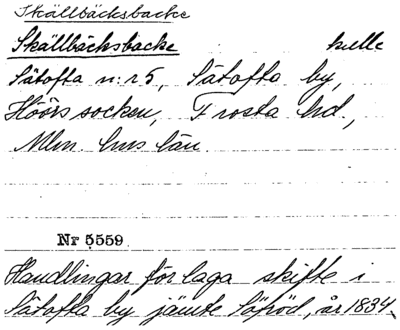 Skällbäcksbacke
Skällbäcksbacke kulle
Sätofta n:r 5, Sätofta by,
Höörs socken, Frosta hd.,
Mlm. hus län.
Nr 5559
Handlingar för laga skifte i
Sätofta by jämte Söröd, år 1834.